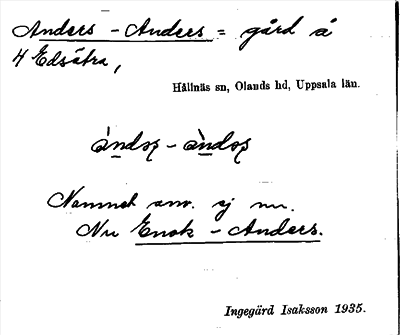 Anders - Anders = gård å
4 Edsätra,
Hållnäs sn, Olands hd, Uppsala län.
ándoʂ - àndoʂ
Namnet anv. ej nu.
Nu Enok - Anders.
Ingegärd Isaksson 1935.